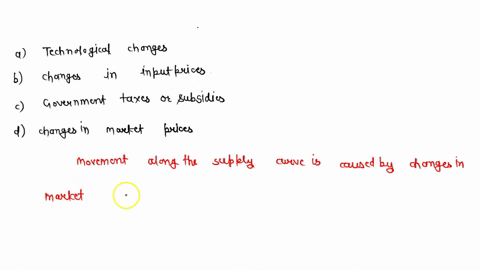 a) Technological changes
b) changes in input prices.
c) Government taxes or subsidies
d) changes in market prices
Movement along the supply curve is caused by changes in
market